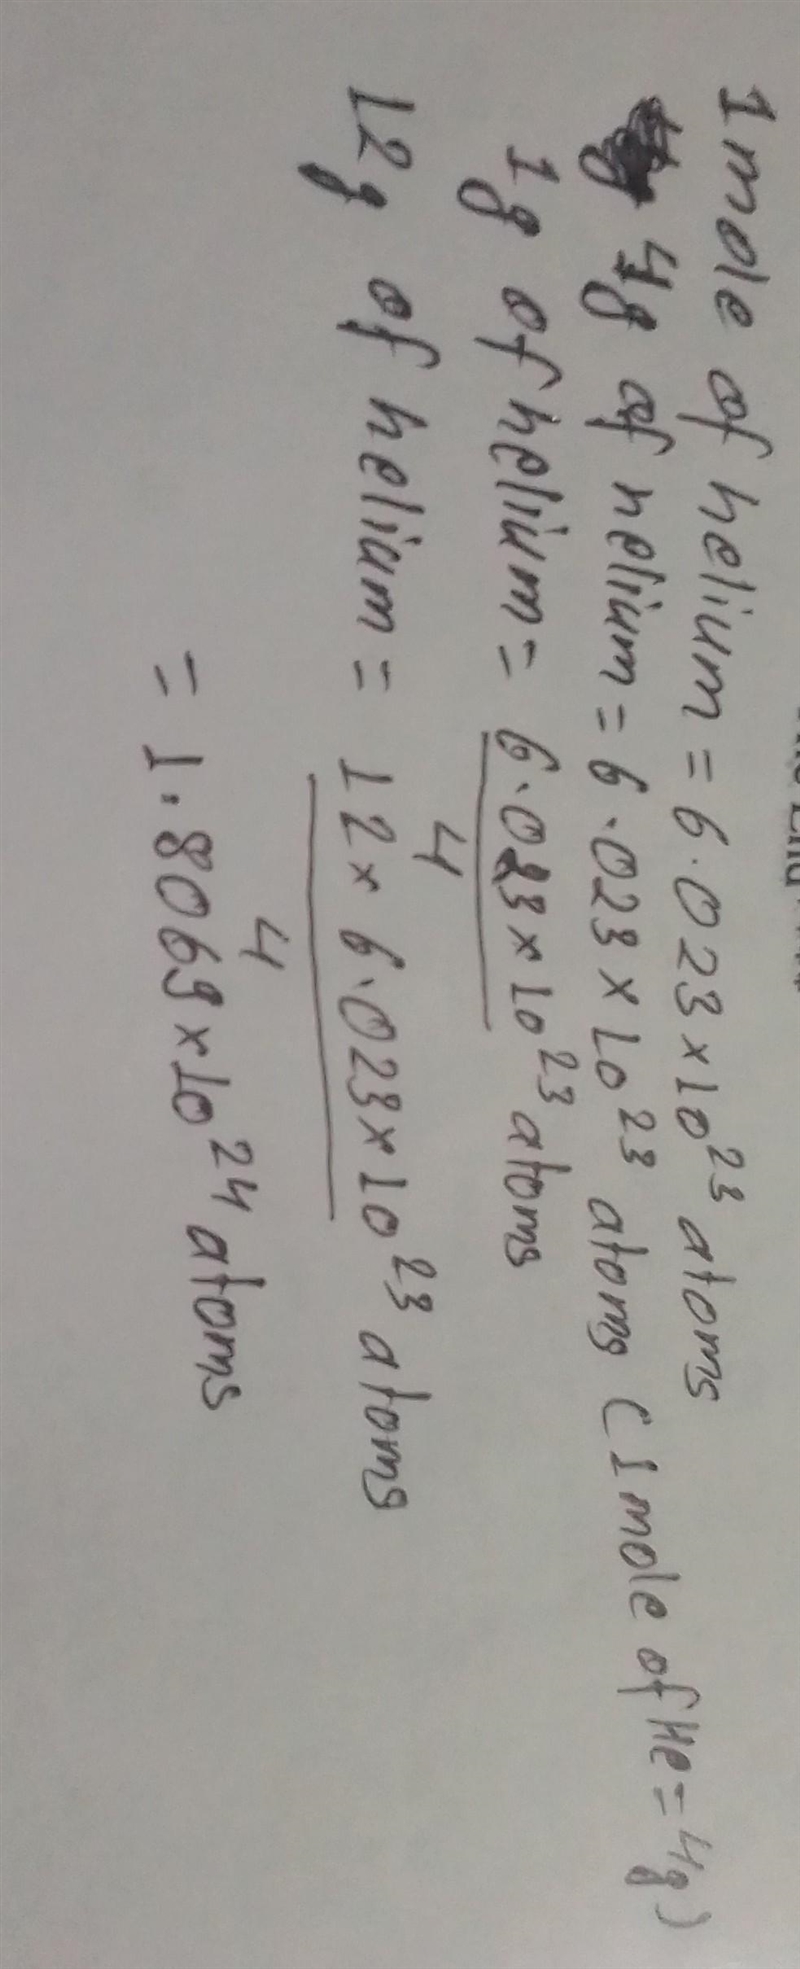 1 mole of helium = 6.023 × 10²³ atoms
4g of helium = 6.023 × 10²³ atoms (1 mole of He = 4g)
1g of helium = 6.023 × 10²³ atoms
4
12g of helium = 12 × 6.023 × 10²³ atoms
4
= 1.8069 × 10²⁴ atoms